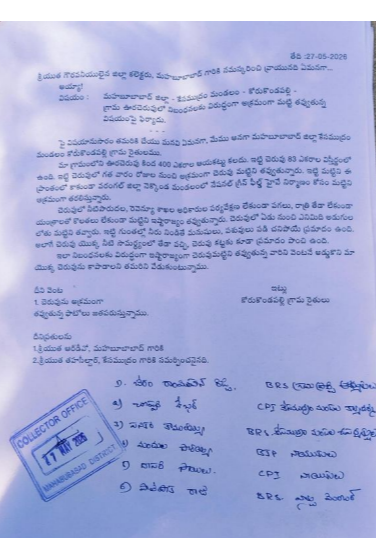 తేది :27-05-2026
శ్రీయుత గౌరవనీయులైన జిల్లా కలెక్టరు, మహబూబాబాద్ గారికి నమస్కరించి వ్రాయునది ఏమనగా...
అయ్యా!
విషయం : మహబూబాబాద్ జిల్లా - కేసముద్రం మండలం - కోరుకొండపల్లి -
గ్రామ ఊరచెరువులో నిబంధనలకు విరుద్ధంగా అక్రమంగా మట్టి తవ్వుతున్న
విషయంపై ఫిర్యాదు.
- - -
పై విషయానుసారం తమరికి మేము మనవి ఏమనగా, మేము అనగా మహబూబాబాద్ జిల్లా కేసముద్రం
మండలం కోరుకొండపల్లి గ్రామ రైతులము.
మా గ్రామంలోని ఊరచెరువు కింద 400 ఎకరాల ఆయకట్టు కలదు. ఇట్టి చెరువు 83 ఎకరాల విస్తీర్ణంలో
ఉంది. ఇట్టి చెరువులో గత వారం రోజుల నుంచి అక్రమంగా చెరువు మట్టిని తవ్వుతున్నారు. ఇట్టి మట్టిని ఈ
ప్రాంతంలో కాకుండా వరంగల్ జిల్లా నెక్కొండ మండలంలో నేషనల్ గ్రీన్ ఫీల్డ్ హైవే నిర్మాణం కోసం మట్టిని
అక్రమంగా తరలిస్తున్నారు.
చెరువులో నీటిపారుదల, రెవెన్యూ శాఖల అధికారుల పర్యవేక్షణ లేకుండా పగలు, రాత్రి తేడా లేకుండా
యంత్రాలతో కొలతలు లేకుండా మట్టిని ఇష్టారాజ్యంగా తవ్వుతున్నారు. చెరువులో ఏడు నుంచి ఎనిమిది అడుగుల
లోతు మట్టిని తవ్వారు. ఇట్టి గుంతల్లో నీరు నిండితే మనుషులు, పశువులు పడి చనిపోయే ప్రమాదం ఉంది.
అలాగే చెరువు యొక్క నీటి సామర్థ్యంలో తేడా వచ్చి, చెరువు కట్టకు కూడా ప్రమాదం పొంచి ఉంది.
ఇలా నిబంధనలకు విరుద్ధంగా ఇష్టారాజ్యంగా చెరువుమట్టిని తవ్వుతున్న వారిని వెంటనే అడ్డుకొని మా
యొక్క చెరువును కాపాడాలని తమరిని వేడుకుంటున్నాము.
దీని వెంట
ఇట్లు
1. చెరువును అక్రమంగా
కోరుకొండపల్లి గ్రామ రైతులు
తవ్వుతున్న ఫొటోలు జతపరుస్తున్నాము.
దీనిప్రతులను
1.శ్రీయుత ఆర్డీవో, మహబూబాబాద్ గారికి
2.శ్రీయుత తహసీల్దార్, కేసముద్రం గారికి సమర్పించనైనది.
BRS
CPI కేసముద్రం మండల
BRS కేసముద్రం మండల
BJP నాయకులు
CPI నాయకులు
BRS
COLLECTOR OFFICE
MAY
MAHABUBABAD DISTRICT